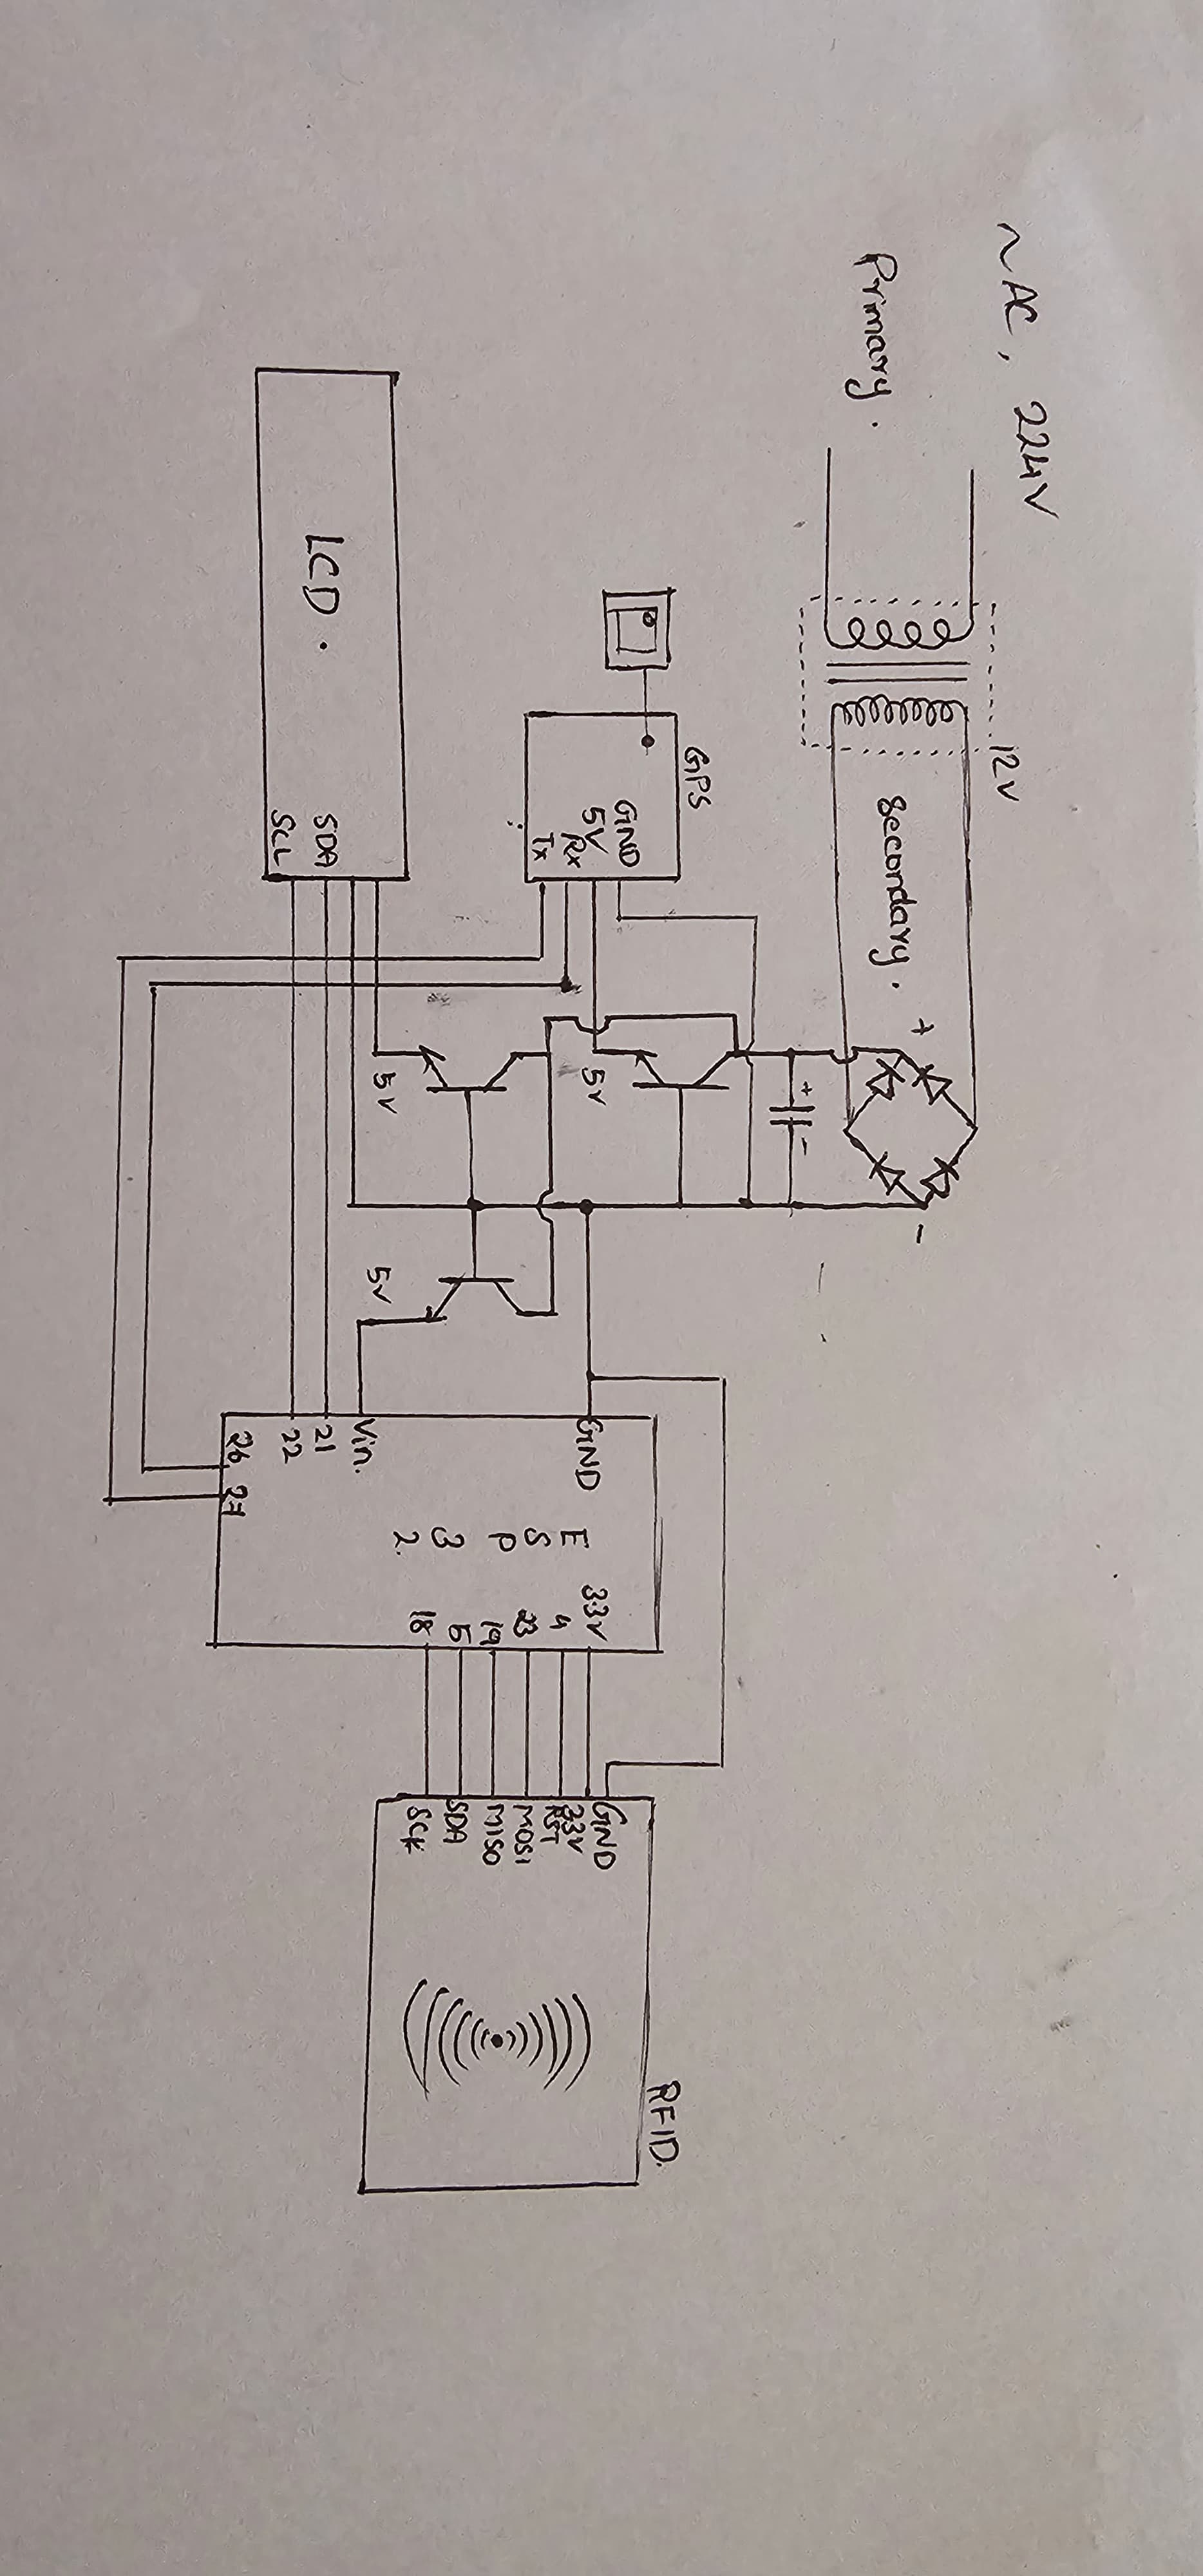 ~ AC, 224V
Primary.
12V
Secondary.
+
-
+
-
GPS
GND
5V
Rx
Tx
5V
LCD.
SDA
SCL
5V
5V
GND
Vin.
21
22
26
27
ESP32.
3.3V
4
23
19
5
18
GND
3.3V
RST
MOSI
MISO
SDA
SCK
RFID.